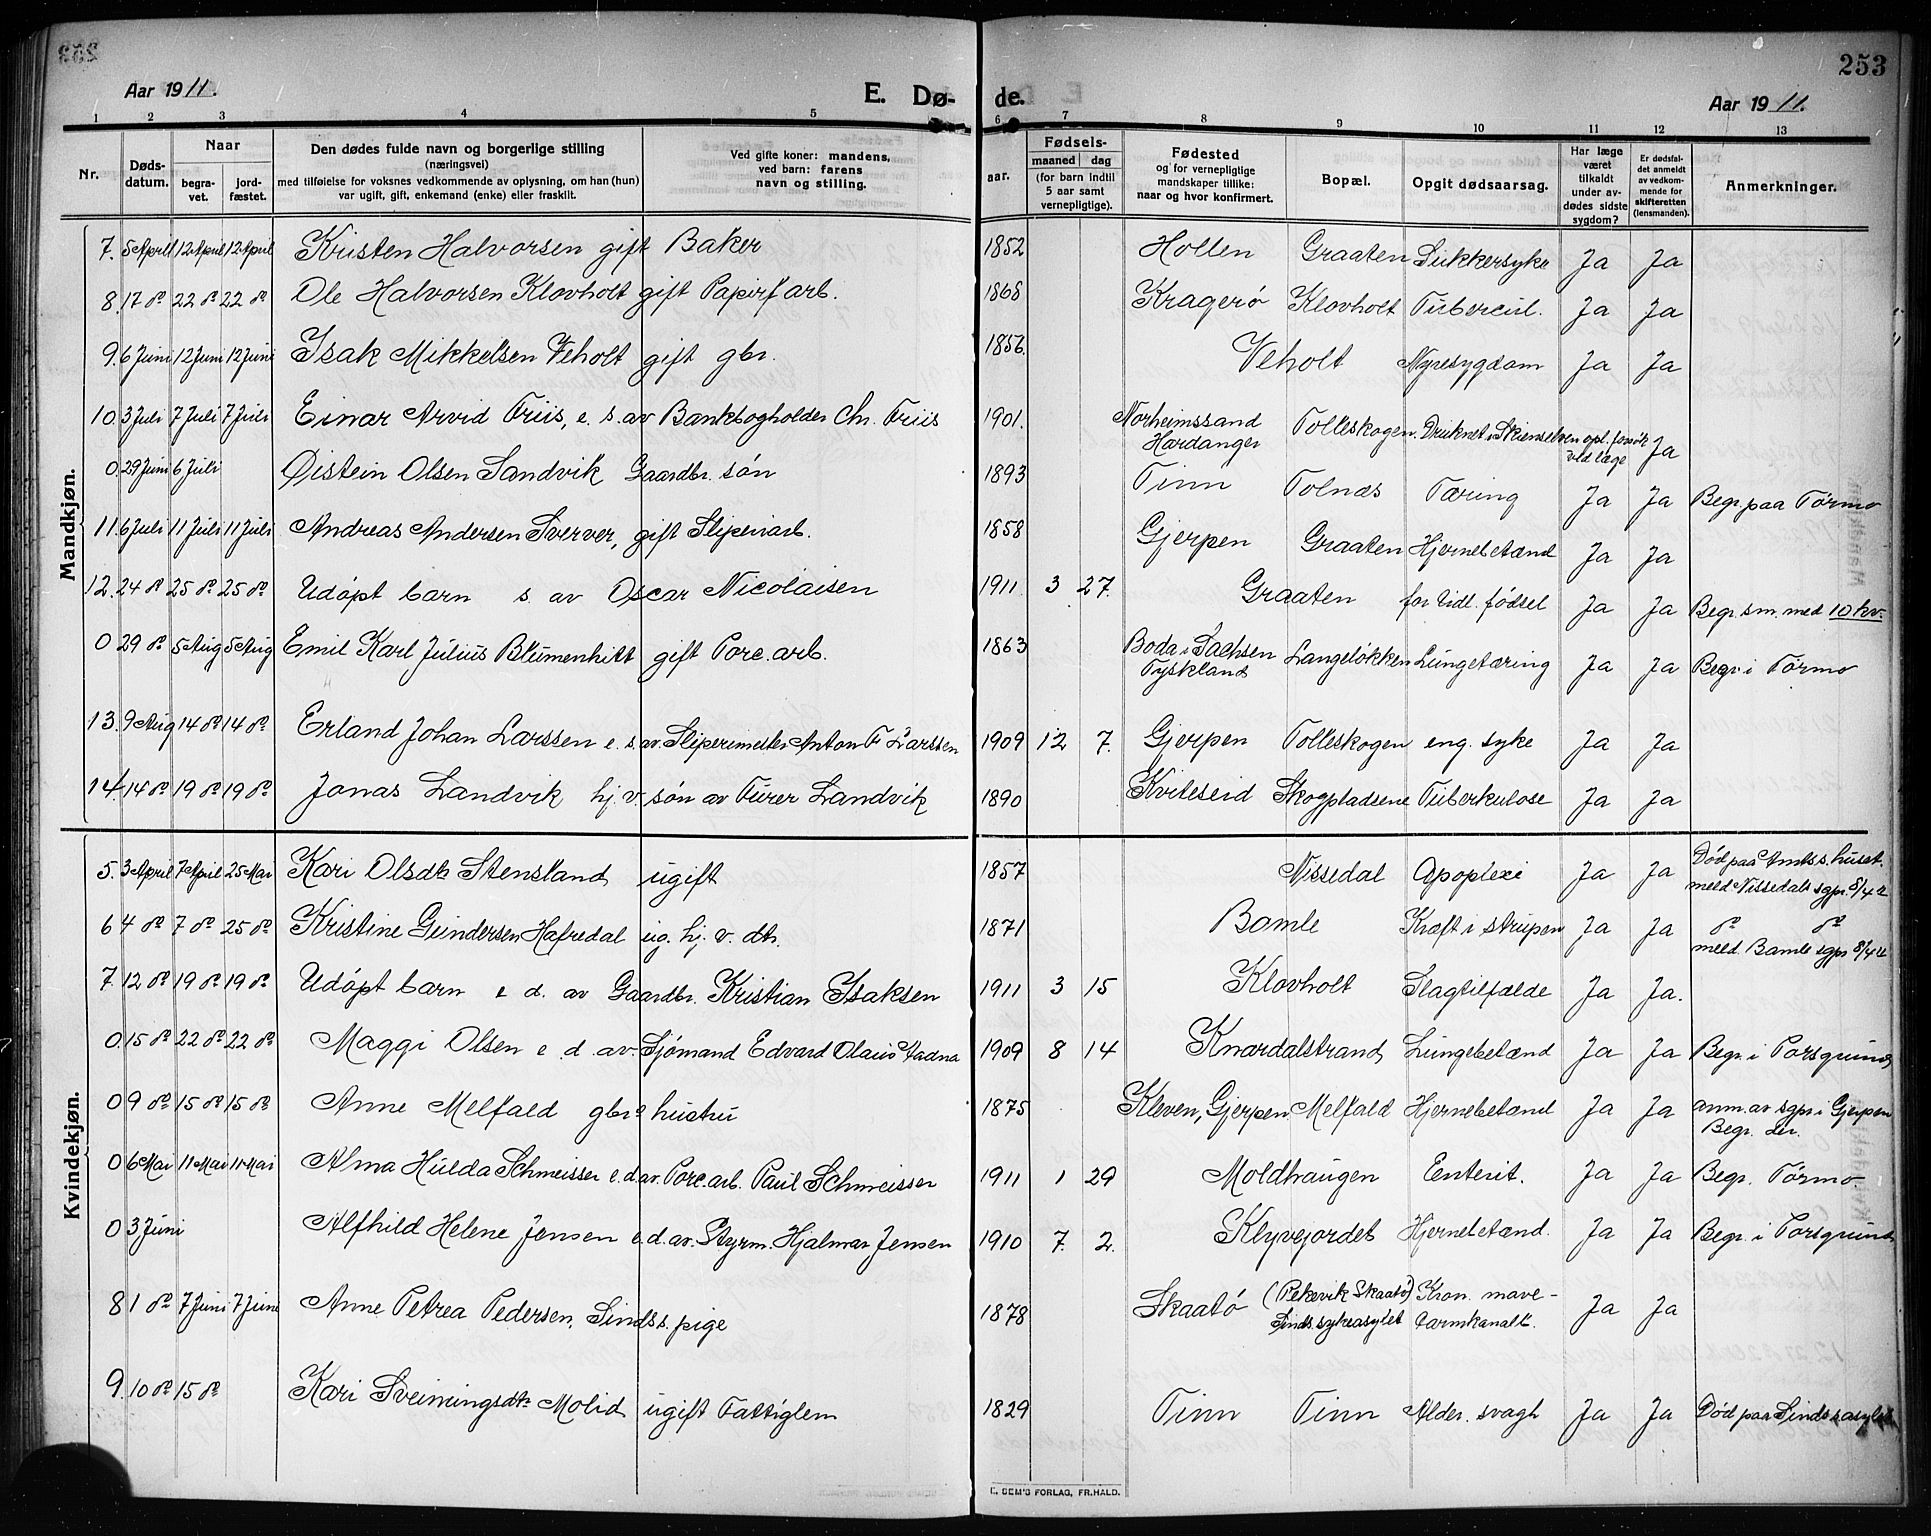 253
Aar 1911. E. Dø- de. Aar 1911.
1 2 3 4 5 6 7 8 9 10 11 12 13
Nr. Døds-datum. Naar begra-vet. jord-fæstet. Den dødes fulde navn og borgerlige stilling (næringsvei) med tilføielse for voksnes vedkommende av oplysning, om han (hun) var ugift, gift, enkemand (enke) eller fraskilt. Ved gifte koner: mandens, ved barn: farens navn og stilling. aar. Fødsels- maaned dag (for barn indtil 5 aar samt vernepligtige). Fødested og for vernepligtige mandskaper tillike: naar og hvor konfirmert. Bopæl. Opgit dødsaarsag. Har læge været tilkaldt under av-dødes sidste sygdom? Er dødsfal-det anmeldt av vedkom-mende for skifteretten (lensmanden). Anmerkninger.
Mandkjøn.
7. 5 April 12 April 12 April Kristen Halvorsen gift Baker 1852 Hollen Graaten Sukkersyke Ja Ja
8. 17 do 22 do 22 do Ole Halvorsen Klovholt gift Papirfarb. 1868 Kragerø Klovholt Tubercul. Ja Ja
9. 6 Juni 12 Juni 12 Juni Isak Mikkelsen Veholt gift gbr. 1856. Veholt Nyresygdom Ja Ja
10. 3 Juli 7 Juli 7 Juli Einar Arvid Friis, e. s. av Bankbogholder Chr. Friis 1901. Norheimssand Hardanger Tolleskogen. Druknet i Skienselven opl. forsøk ved læge Ja
0. 29 Juni 6 Juli Øistein Olsen Sandvik Gaardbr. søn 1893 Tinn Tolnæs Tæring Ja Ja Begr. paa Tørmo
11. 6 Juli 11 Juli 11 Juli Andreas Andersen Sverver, gift Sliperiarb. 1858 Gjerpen Graaten Hjernebetænd Ja Ja
12. 24 do 25 do 25 do Udøpt barn s. av Oscar Nicolaisen 1911. 3 27. Graaten for tidl. fødsel Ja Ja Begr. sm. med 10 kv.
0 29 do 5 Aug 5 Aug Emil Karl Julius Blumenhitt gift Porc. arb. 1863 Boda i Sachsen Tyskland Langeløkken Lungetæring Ja Ja Begr. i Tørmo
13. 9 Aug 14 do 14 do Erland Johan Larssen e. s. av. Sliperimester Anton F Larssen 1909 12 7. Gjerpen Tolleskogen eng. syke Ja Ja
14. 14 do 19 do 19 do Jonas Landvik hj. v. søn av Turer Landvik 1890 Kviteseid Skogpladsene Tuberkulose Ja Ja
Kvindekjøn.
5. 3 April 7 April 25 Mai Kari Olsdtr Stensland ugift 1857 Nissedal Apoplexi Ja Ja Død paa Amts s. huset. meld Nissedals sgpr. 8/4 11
6 4 do 7 do 25 do Kristine Gundersen Hafredal ug. hj. v. dtr. 1871 Bamle Kræft i strupen Ja Ja do do meld. Bamle sgpr 8/4 11
7. 12 do 19 do 19 do Udøpt barn e d. av Gaardbr. Kristian Isaksen 1911 3 15 Klovholt Slagtilfælde Ja Ja.
0. 15 do 22 do 22 do Maggi Olsen e. d. av. Sjømand Edvard Olaus Aadna 1909 8 14 Knardalstrand Lungebetænd Ja Ja Begr. i Porsgrund
0 9 do 15 do 15 do Anne Melfald gbr.s hustru 1875 Kleven, Gjerpen Melfald Hjernebetænd Ja Ja anm. av sgpr. i Gjerpen Begr. der.
0 6 Mai 11 Mai 11 Mai Alma Hulda Schmeisser e. d. av. Porc. arb. Paul Schmeisser 1911 1 29 Moldhaugen Eenterit. Ja Ja Begr. Tørmo
0 3 Juni Alfhild Helene Jensen e. d. av. Styrm. Hjalmar Jensen 1910 7. 2. Klyvejordet Hjernebetænd. Ja Ja Begr. i Porsgrund
8 1 do 7 Juni 7 June Anne Petrea Pedersen, Sindss. pige 1878 Skaatø (Pekevik Skaatø) Sinds.sykeasylet Kron. mave- tarmkanalk. Ja Ja
9. 10 do 15 do Kari Sveinungsdtr Molid ugift Fattiglem 1829 Tinn Tinn Alder. svagh Ja Ja Død paa Sindssasylet
E. SEM'S FORLAG, FR.HALD.